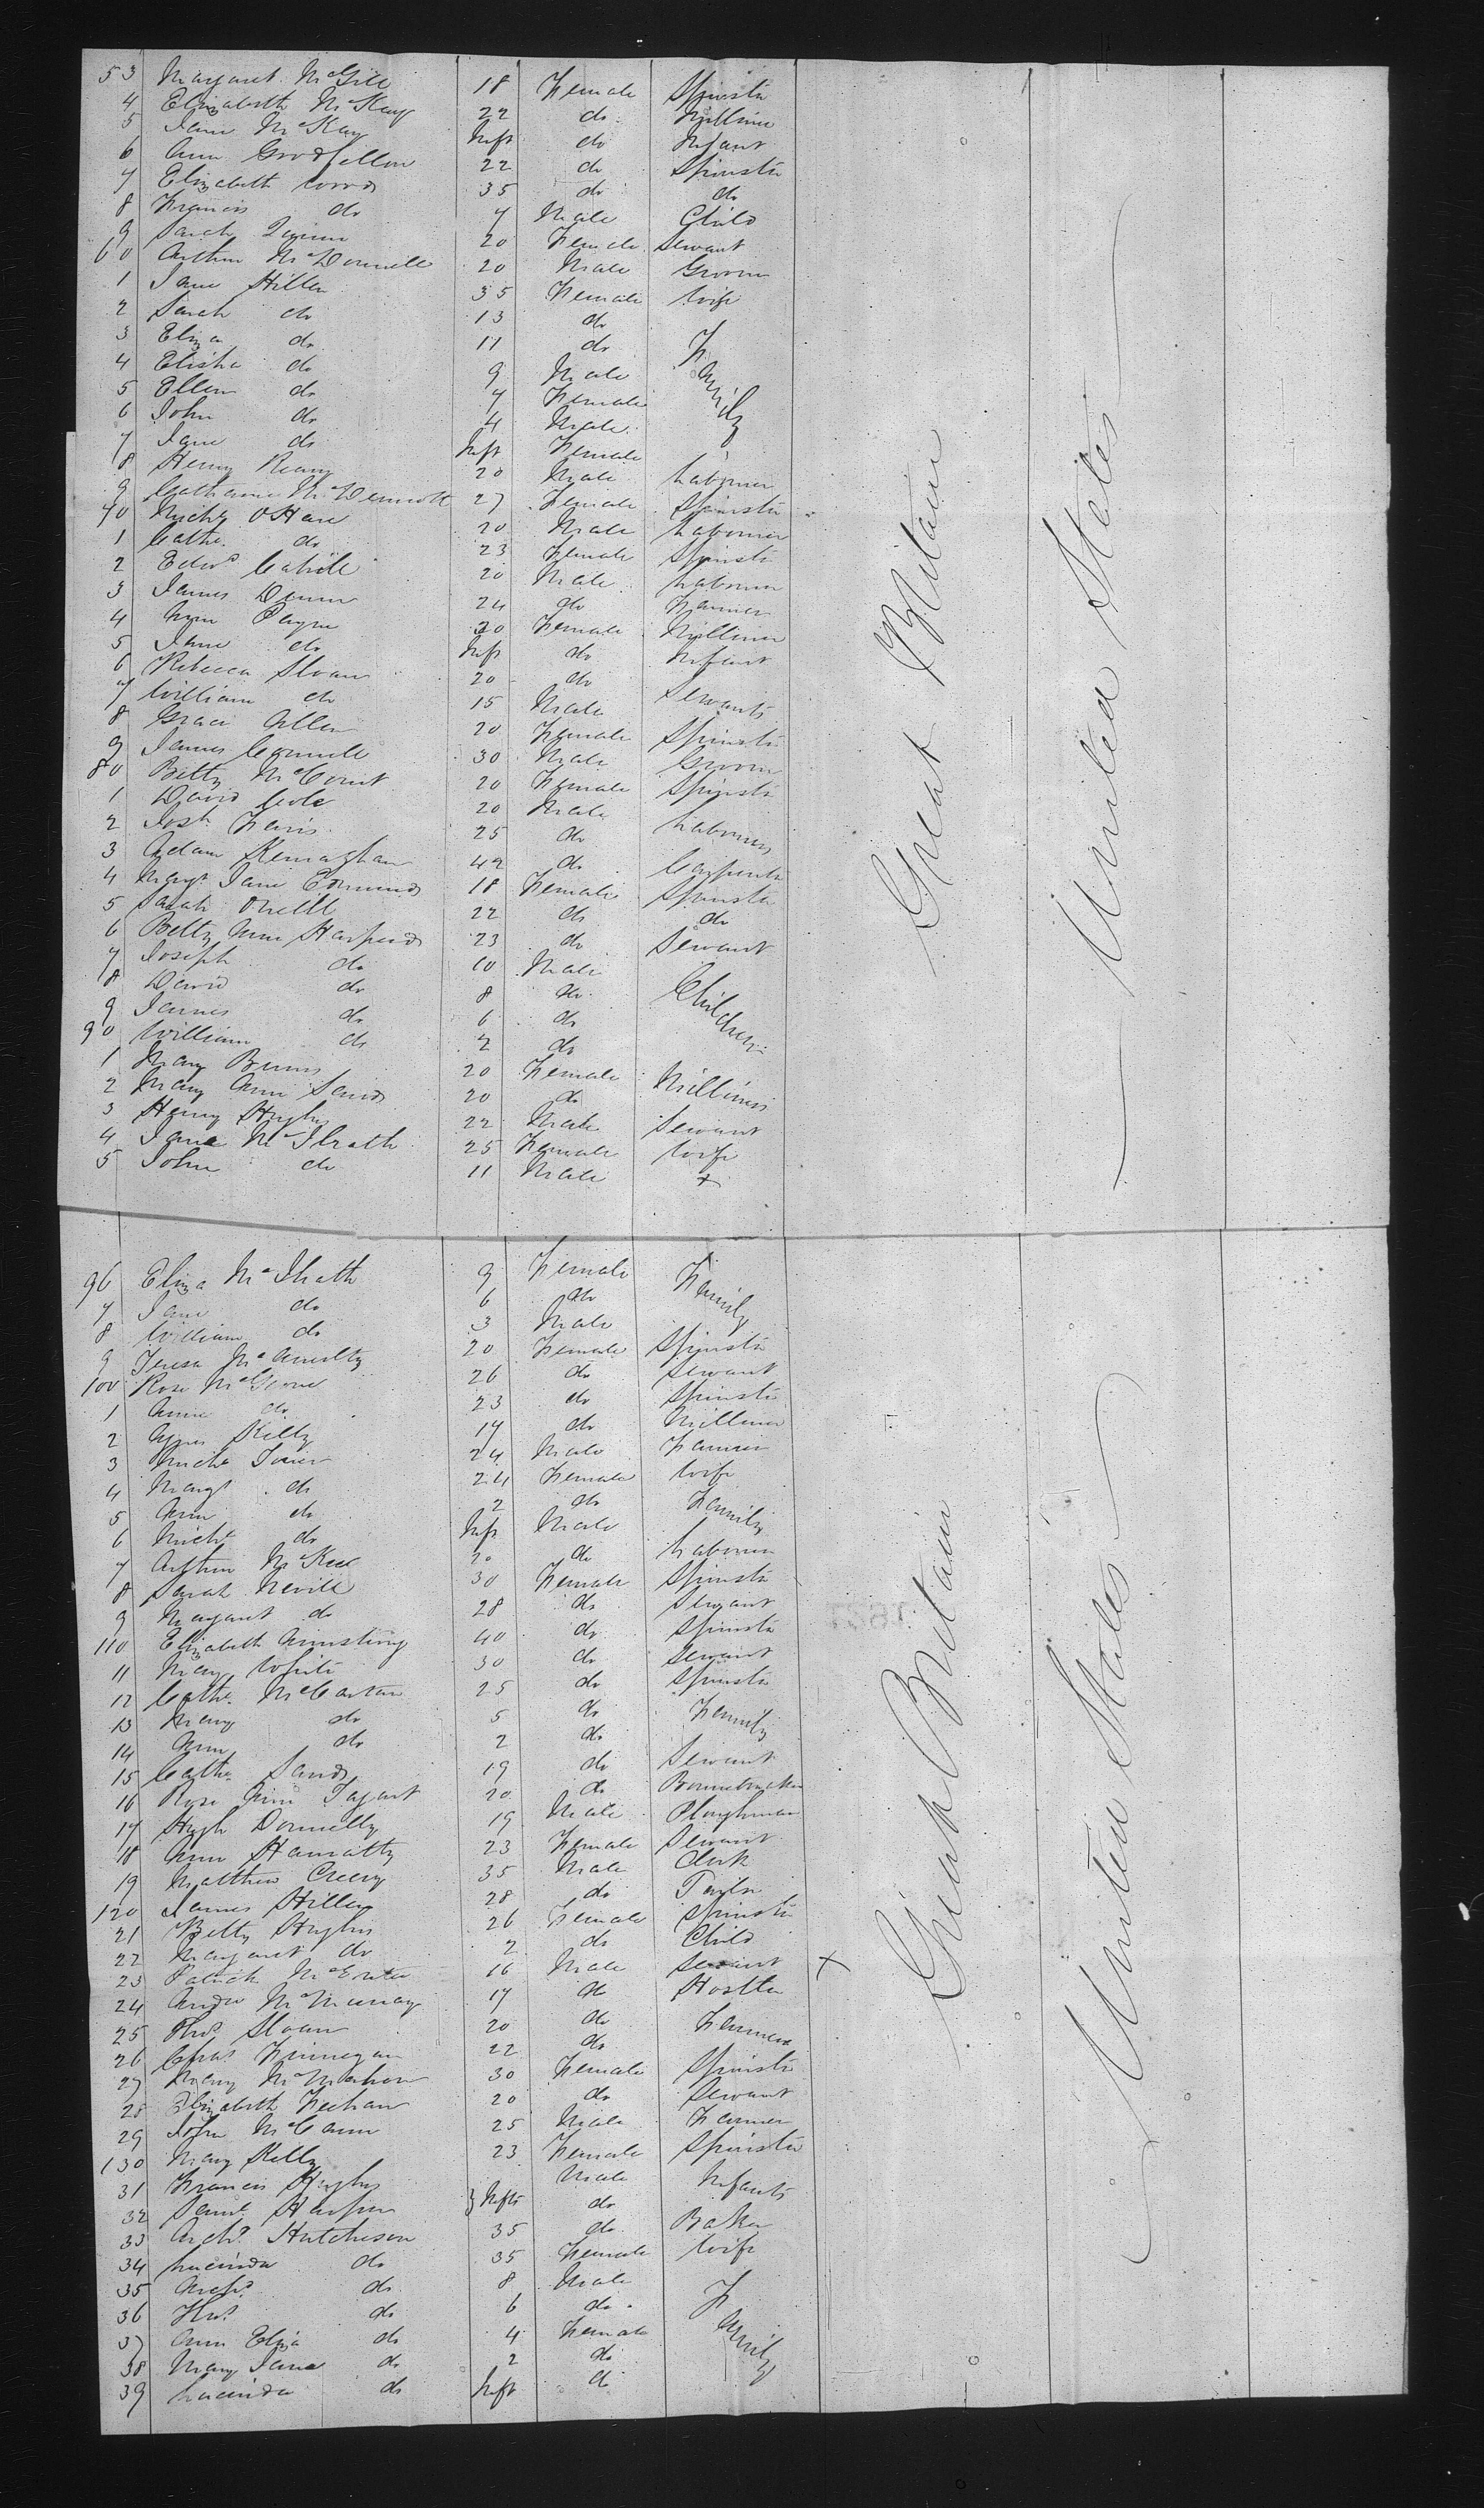 53 Margaret McGill 18 Female Spinster
4 Elizabeth McKay 22 do Milliner
5 Jane McKay Inft do Infant
6 Ann Goodfellow 22 do Spinster
7 Elizabeth Wood 35 do do
8 Francis do 7 Male Child
9 Sarah Quinn 20 Female Servant
60 Arthur McDonnell 20 Male Groom
1 Jane Hillen 35 Female Wife
2 Sarah do 13 do
3 Eliza do 11 do Family
4 Elisha do 9 Male
5 Ellen do 7 Female
6 John do 4 Male
7 Jane do Inft Female
8 Henry 20 Male Labourer
9 Catharine McDermott 27 Female Spinster
70 Michl O'Hare 20 Male Labourer
1 Cathe. do 23 Female Spinster
2 Edwd Cahill 20 Male Labourer
3 James 24 do Farmer
4 Payne 20 Female Milliner
5 Jane do Inft do Infant
6 Rebecca Sloan 20 do Servants
7 William do 15 Male
8 Grace Allen 20 Female Spinster
9 James Connell 30 Male Groom
80 Betty McCourt 20 Female Spinster
1 David Cole 20 Male Labourers
2 Josh. 25 do
3 Adam Kernaghan 42 do Carpenter
4 Margt Jane Edmund 18 Female Spinster
5 Sarah ONeill 22 do do
6 Betty Ann 23 do Servant
7 Joseph do 10 Male Children
8 David do 8 do
9 James do 6 do
90 William do 2 do
1 Mary Burns 20 Female Milliners
2 Mary Ann Sands 20 do
3 Henry Hughes 22 Male Servant
4 Jane McIlrath 25 Female Wife
5 John do 11 Male +
Great Britain
United States
96 Eliza McIlrath 9 Female Family
7 Jane do 6 do
8 William do 3 Male
9 Teresa McAnulty 20 Female Spinster
100 Rose 26 do Servant
1 Anne do 23 do Spinster
2 Agnes Kelly 17 do Milliner
3 Michl 24 Male Farmer
4 Margt do 24 Female Wife
5 Ann do 2 do Family
6 Michl do Inft Male
7 Arthur McKee 20 do Labourer
8 Sarah Nevill 30 Female Spinster
9 Margaret do 28 do Servant
110 Elizabeth Armstrong 40 do Spinster
11 Mary White 30 do Servant
12 Cathe. McCartan 25 do Spinster
13 Mary do 5 do Family
14 Ann do 2 do
15 Cathe. Sands 19 do Servant
16 Rose Ann Tagart 20 do Bonnetmaker
17 Hugh Donnelly 19 Male Ploughman
18 Ann 23 Female Servant
19 Matthew Creery 35 Male Clerk
120 James Hillen 28 do Tailor
21 Betty Hughes 26 Female Spinster
22 Margaret do 2 do Child
23 Patrick 16 Male Servant X
24 Andw McMurray 17 do Hostler
25 Thos. Sloan 20 do Farmers
26 Chas. Finnegan 22 do
27 Mary McMahon 30 Female Spinster
28 Elizabeth Feehan 20 do Servant
29 John McCann 25 Male Farmer
130 Mary Kelly 23 Female Spinster
31 Francis Hughes Infts Male Infants
32 Saml. Harper do
33 Archd. Hutcheson 35 do Baker
34 Lucinda do 35 Female Wife
35 Archd. do 8 Male Family
36 Thos. do 6 do
37 Ann Eliza do 4 Female
38 Mary Jane do 2 do
39 Lucinda do Inft do
Great Britain
United States